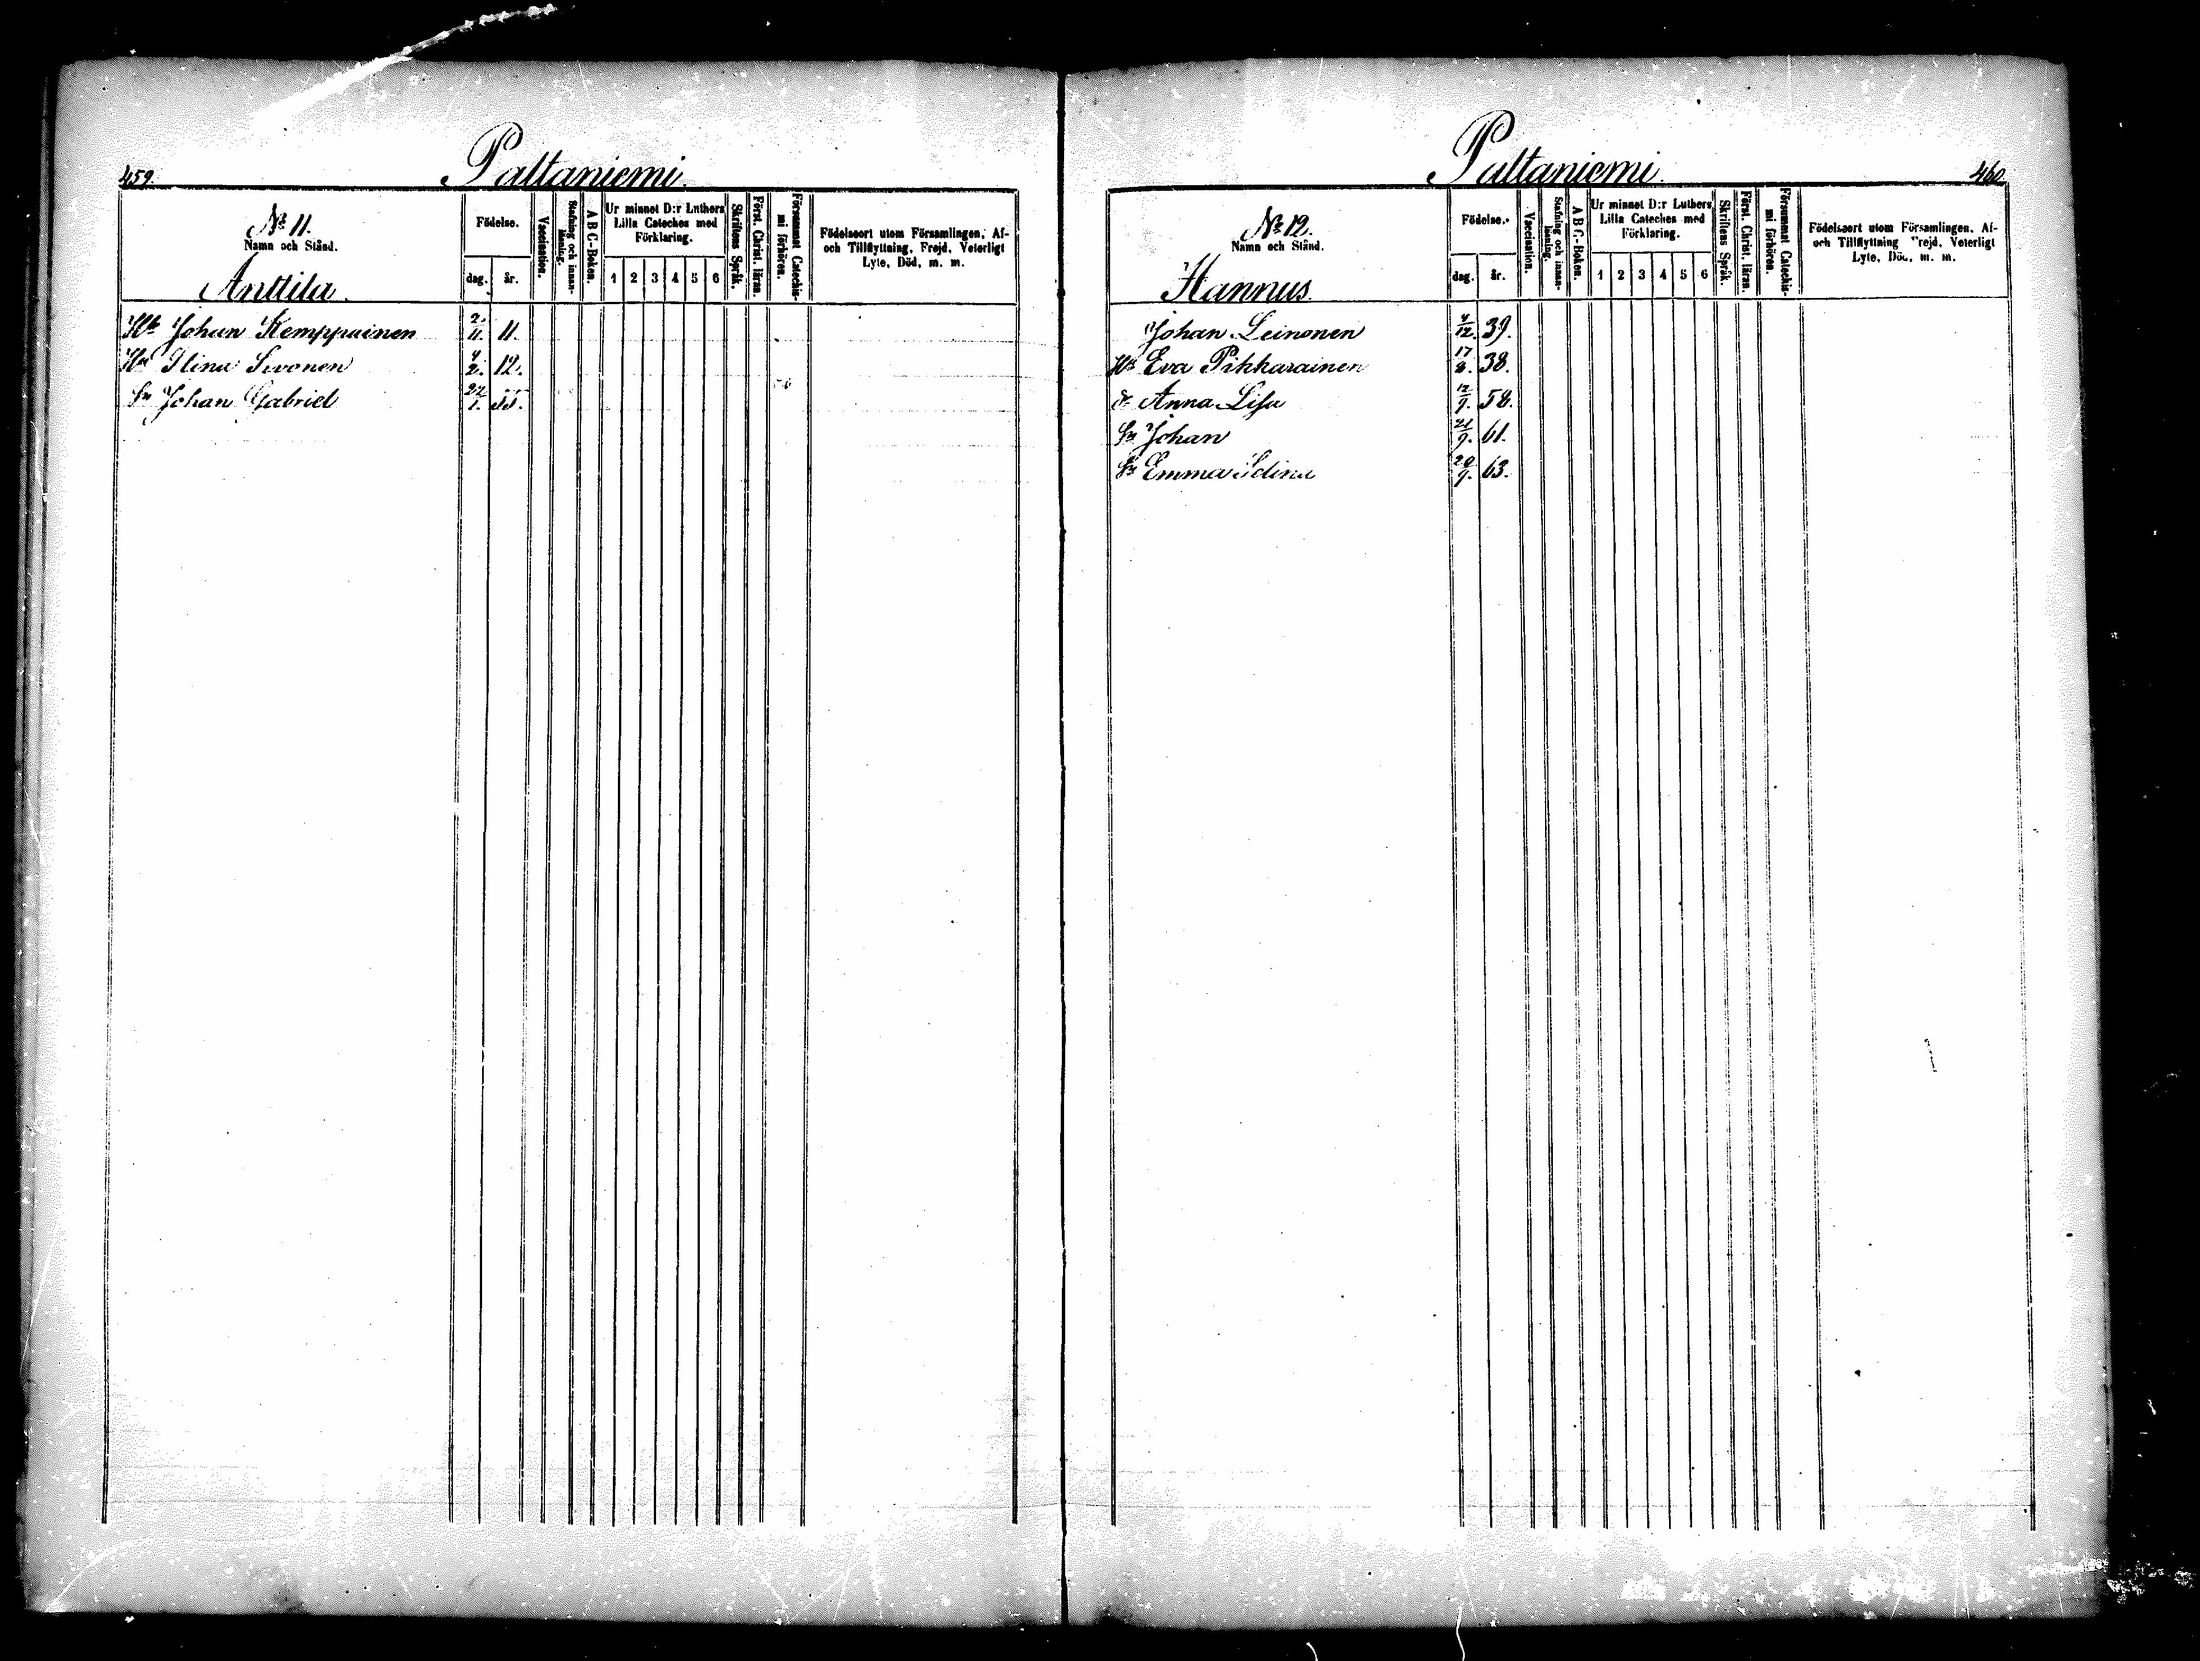 459.
Paltaniemi.
№ 11.
Namn och Stånd.
Anttila.
Födelse.
dag.
år.
Vaccination.
Stafning och innan-
läsning.
A B C-Boken.
Ur minnet D:r Luthers
Lilla Cateches med
Förklaring.
1 2 3 4 5 6
Skriftens Språk.
Först. Christ. läran.
Försummat Catechis-
mi förhören.
Födelseort utom Församlingen, Af-
och Tillflyttning, Frejd, Veterligt
Lyte, Död, m. m.
Johan Kemppainen 2/11. 11.
Hu Stina Sivonen 4/2. 12.
Sn Johan Gabriel 22/1. 55.
Paltaniemi.
460.
№ 12.
Namn och Stånd.
Hannus.
Födelse.
dag.
år.
Vaccination.
Stafning och innan-
läsning.
A B C-Boken.
Ur minnet D:r Luthers
Lilla Cateches med
Förklaring.
1 2 3 4 5 6
Skriftens Språk.
Först. Christ. läran.
Försummat Catechis-
mi förhören.
Födelseort utom Församlingen, Af-
och Tillflyttning Frejd, Veterligt
Lyte, Död, m. m.
Johan Leinonen 4/12. 39.
Hu Eva Pikkarainen 17/2. 38.
Anna Lisa 12/9. 58.
Sn Johan 21/9. 61.
Emma 20/9. 63.